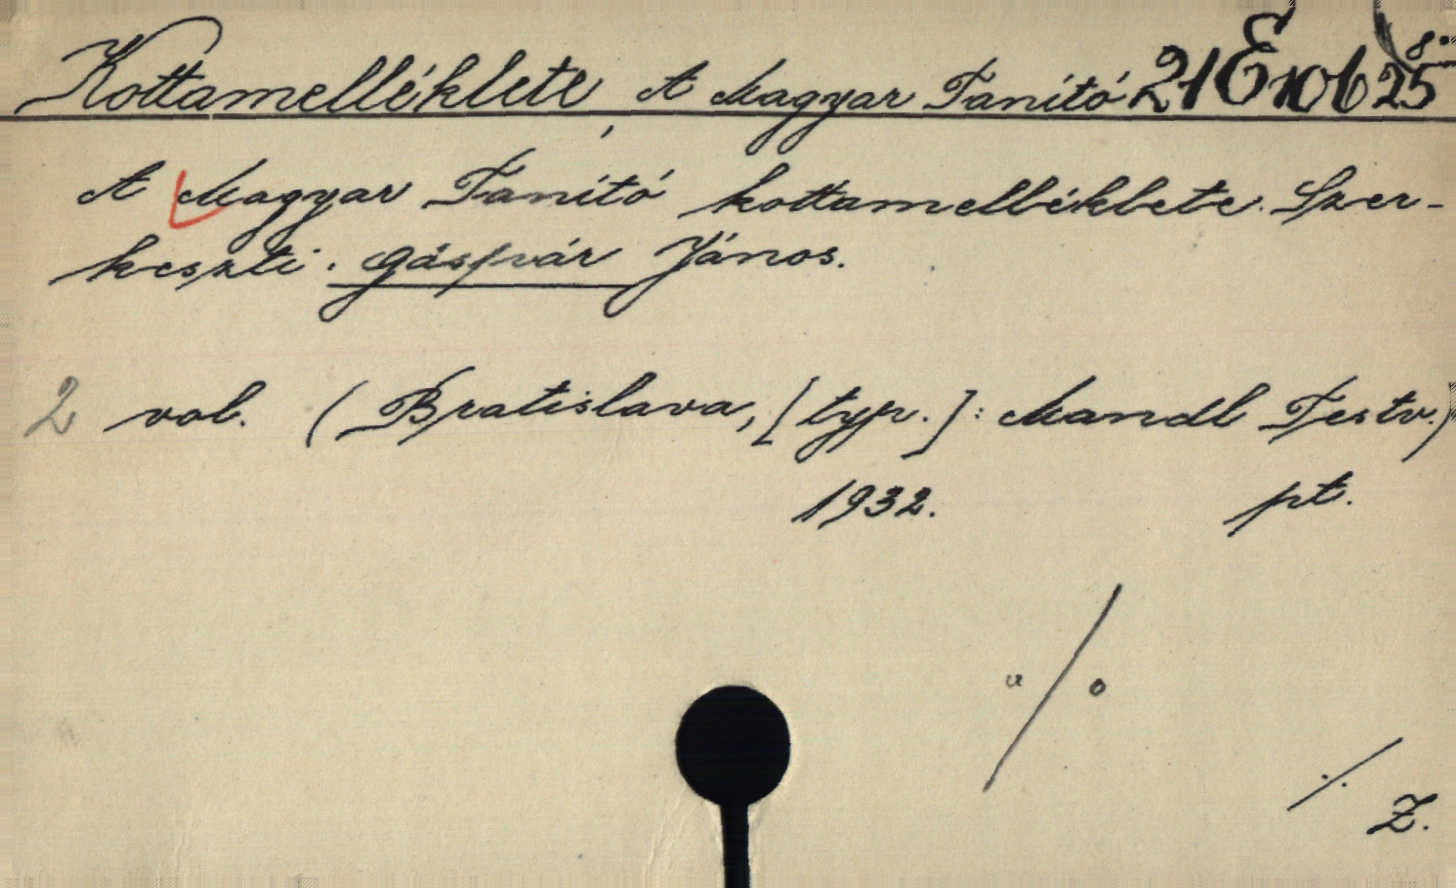 Kottamelléklete, A Magyar Tanító 21 E 106 25 8°
A Magyar Tanító kottamelléklete. Szer-
keszti. Gáspár János.
2 vol. (Bratislava, [typ.]: Mandl Testv.)
1932. pt.
a / o
./. Z.